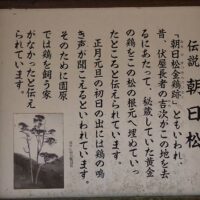 伝説 朝日松
「朝日松金鶏跡」ともいわれ
昔、伏屋長者の吉次がこの地を去
るにあたって、秘蔵していた黄金
の鶏をこの松の根元へ埋めていっ
たところと伝えられています。
正月元旦の初日の出には鶏の鳴
き声が聞こえるといわれています。
そのために園原
では鶏を飼う家
がなかったと伝え
られています。